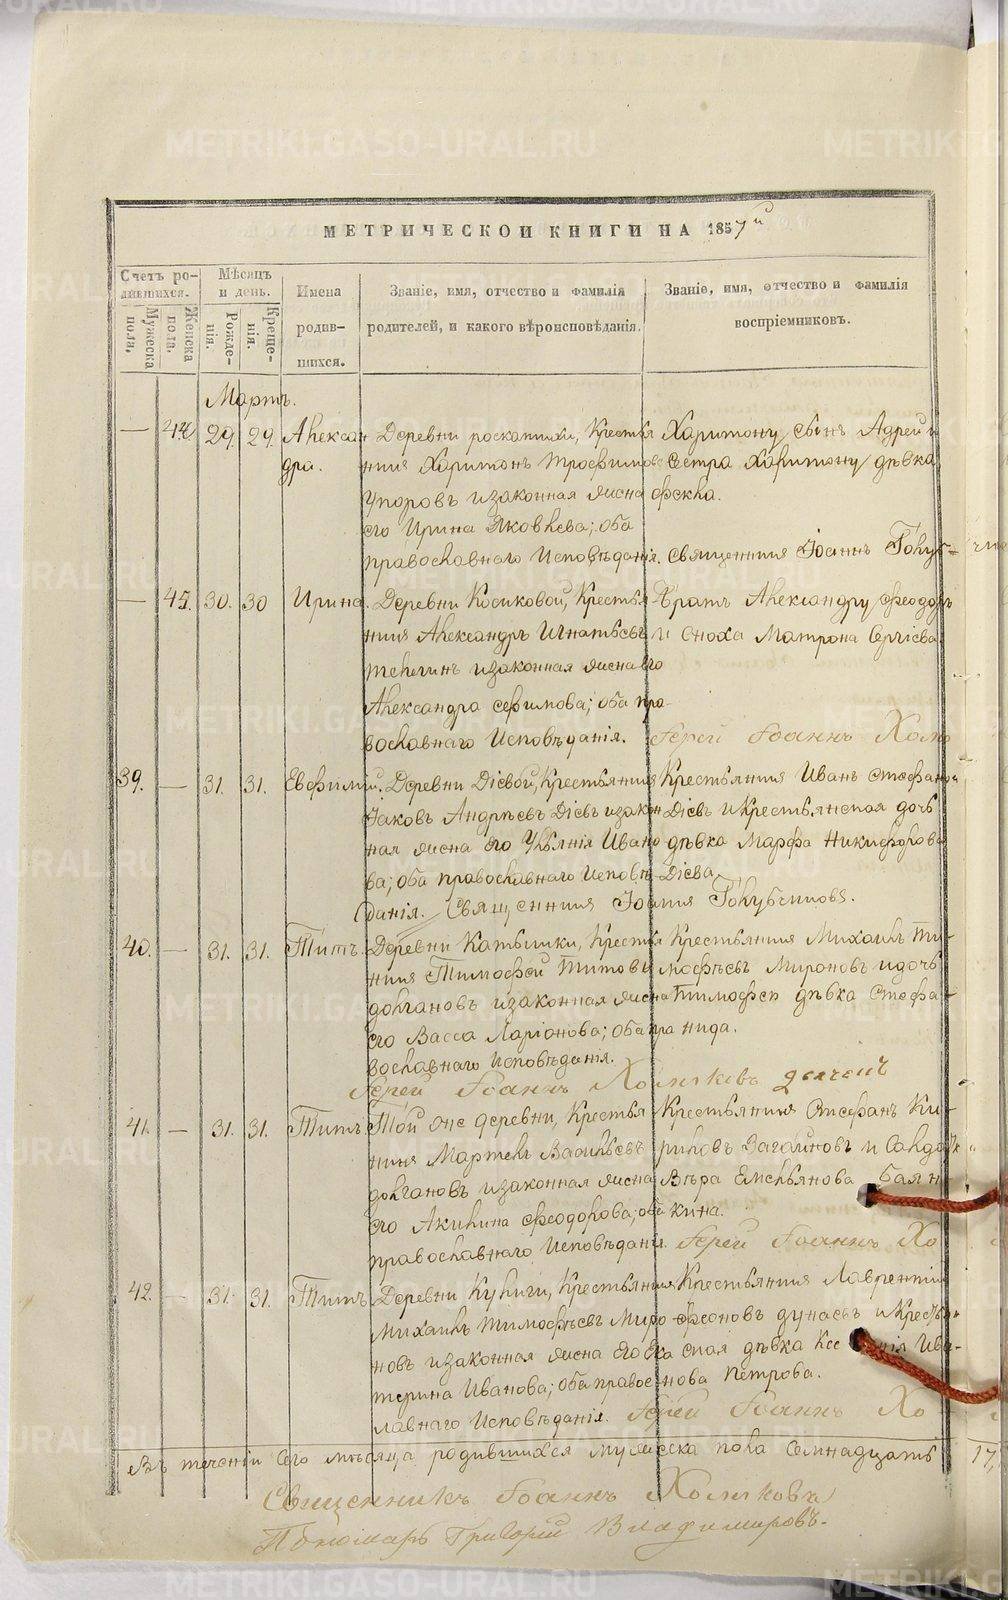 МЕТРИЧЕСКОЙ КНИГИ НА 1857й
Счетъ родившихся.
Мужеска пола.
Женска пола.
Мѣсяцъ и день.
Рожденія.
Крещенія.
Имена родившихся.
Званіе, имя, отчество и фамилія родителей, и какого вѣроисповѣданія.
Званіе, имя, отчество и фамилія воспріемниковъ.
Мартъ.
— 44 29 29 Алексан
дра.
Деревни роскатихи, Крестья
нинъ Харитонъ Трофимовъ
Упоровъ изаконная жена
его Ирина Яковлева; оба
православнаго Исповѣданія.
Харитону сынъ Адрей и
Сестра Харитону дѣвка
фекла.
Священникъ Іоаннъ Голуб-
— 45. 30. 30 Ирина.
Деревни Косиковой, Крестья
нинъ Александръ Игнатьевъ
телегинъ изаконная женаего
Александра сефимова; оба пра-
вославнаго Исповѣданія.
Братъ Александру феодоръ
и Сноха Матрона Сергіева
Іерей Іоаннъ Холм
39. — 31. 31. Евфимій.
Деревни Діевой, Крестьянинъ
Іаковъ Андрѣевъ Діевъ изакон
ная жена Его Уліянія Ивано
ва; оба православнаго Исповѣ
данія.
Крестьянинъ Иванъ стефанов
Діевъ и Крестьянская дочь
дѣвка Марфа Никифорова
Діева
Священникъ Іоаннъ Голубчиковъ.
40. — 31. 31. Титъ.
Деревни Катышки, Крестья
нинъ Тимофей Титовъ
долгановъ изаконная жена
его Васса Ларіонова; оба пра
вославнаго Исповѣданія.
Крестьянинъ Михаилъ Ти-
мофѣевъ Мироновъ и дочь
Тимофея дѣвка Стефа-
нида.
Іерей Іоаннъ
41. — 31. 31. Титъ
Той же деревни, Крестья
нинъ Мартелъ Васильевъ
долгановъ изаконная жена
его Акилина феодорова; оба
православнаго Исповѣданія.
Крестьянинъ Стефанъ Ки-
риловъ Загайновъ и Солдатк
Вѣра Емельянова Балан
кина.
Іерей Іоаннъ Хо
42. — 31. 31. Титъ
Деревни Кулиги, Крестьянинъ
Михаилъ Тимофѣевъ Миро
новъ изаконная жена Его Ека
терина Иванова; оба правос
лавнаго Исповѣданія.
Крестьянинъ Лаврентій
фоновъ дунаевъ и Крестьян
ская дѣвка Ксенія Ива-
нова Петрова.
Іерей Іоаннъ Хо
Въ теченіи сего мѣсяца родившихся мужеска пола Семнадцать 17,
Священникъ Іоаннъ
Пономарь Григорій Владимировъ.
METRIKI.GASO-URAL.RU